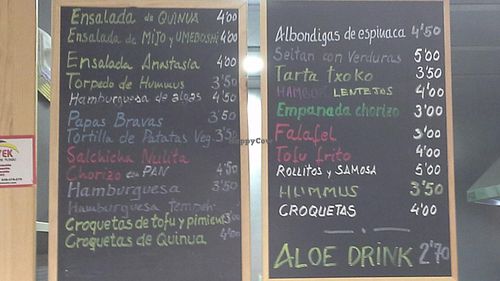 Ensalada de QUINUA 4'00
Ensalada de MIJO y UMEBOSHI 4'00
Ensalada Anastasia 4'00
Torpedo de Hummus 3'50
Hamburguesa de algas 4'50
Papas Bravas 3'50
Tortilla de Patatas Veg. 3'50
Salchicha Nulita
Chorizo en PAN 4'50
Hamburguesa 3'50
Hamburguesa Tempeh
Croquetas de tofu y pimiento 3'00
Croquetas de Quinua 4'00
Albondigas de espinaca 4'50
Seitan con Verduras 5'00
Tarta txoko 3'50
HAMBUR LENTEJOS 4'00
Empanada chorizo 3'00
Falafel 3'00
Tofu frito 4'00
ROLLITOS y SAMOSA 5'00
HUMMUS 3'50
CROQUETAS 4'00
ALOE DRINK 2'70
HappyCow
EK